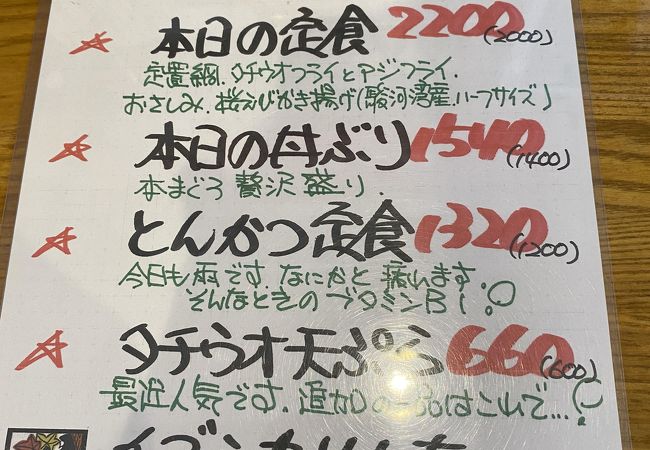 本日の定食 2200 (2000)
定置網、タチウオフライとアジフライ、
おさしみ、桜えびかき揚げ(駿河湾産、ハーフサイズ)
本日の丼ぶり 1540 (1400)
本まぐろ 贅沢盛り、
とんかつ定食 1320 (1200)
今日も雨です、なにかと疲れます、
そんなときのブタミンB1!
タチウオ天ぷら 660 (600)
最近人気です、追加の一品はこれで...!